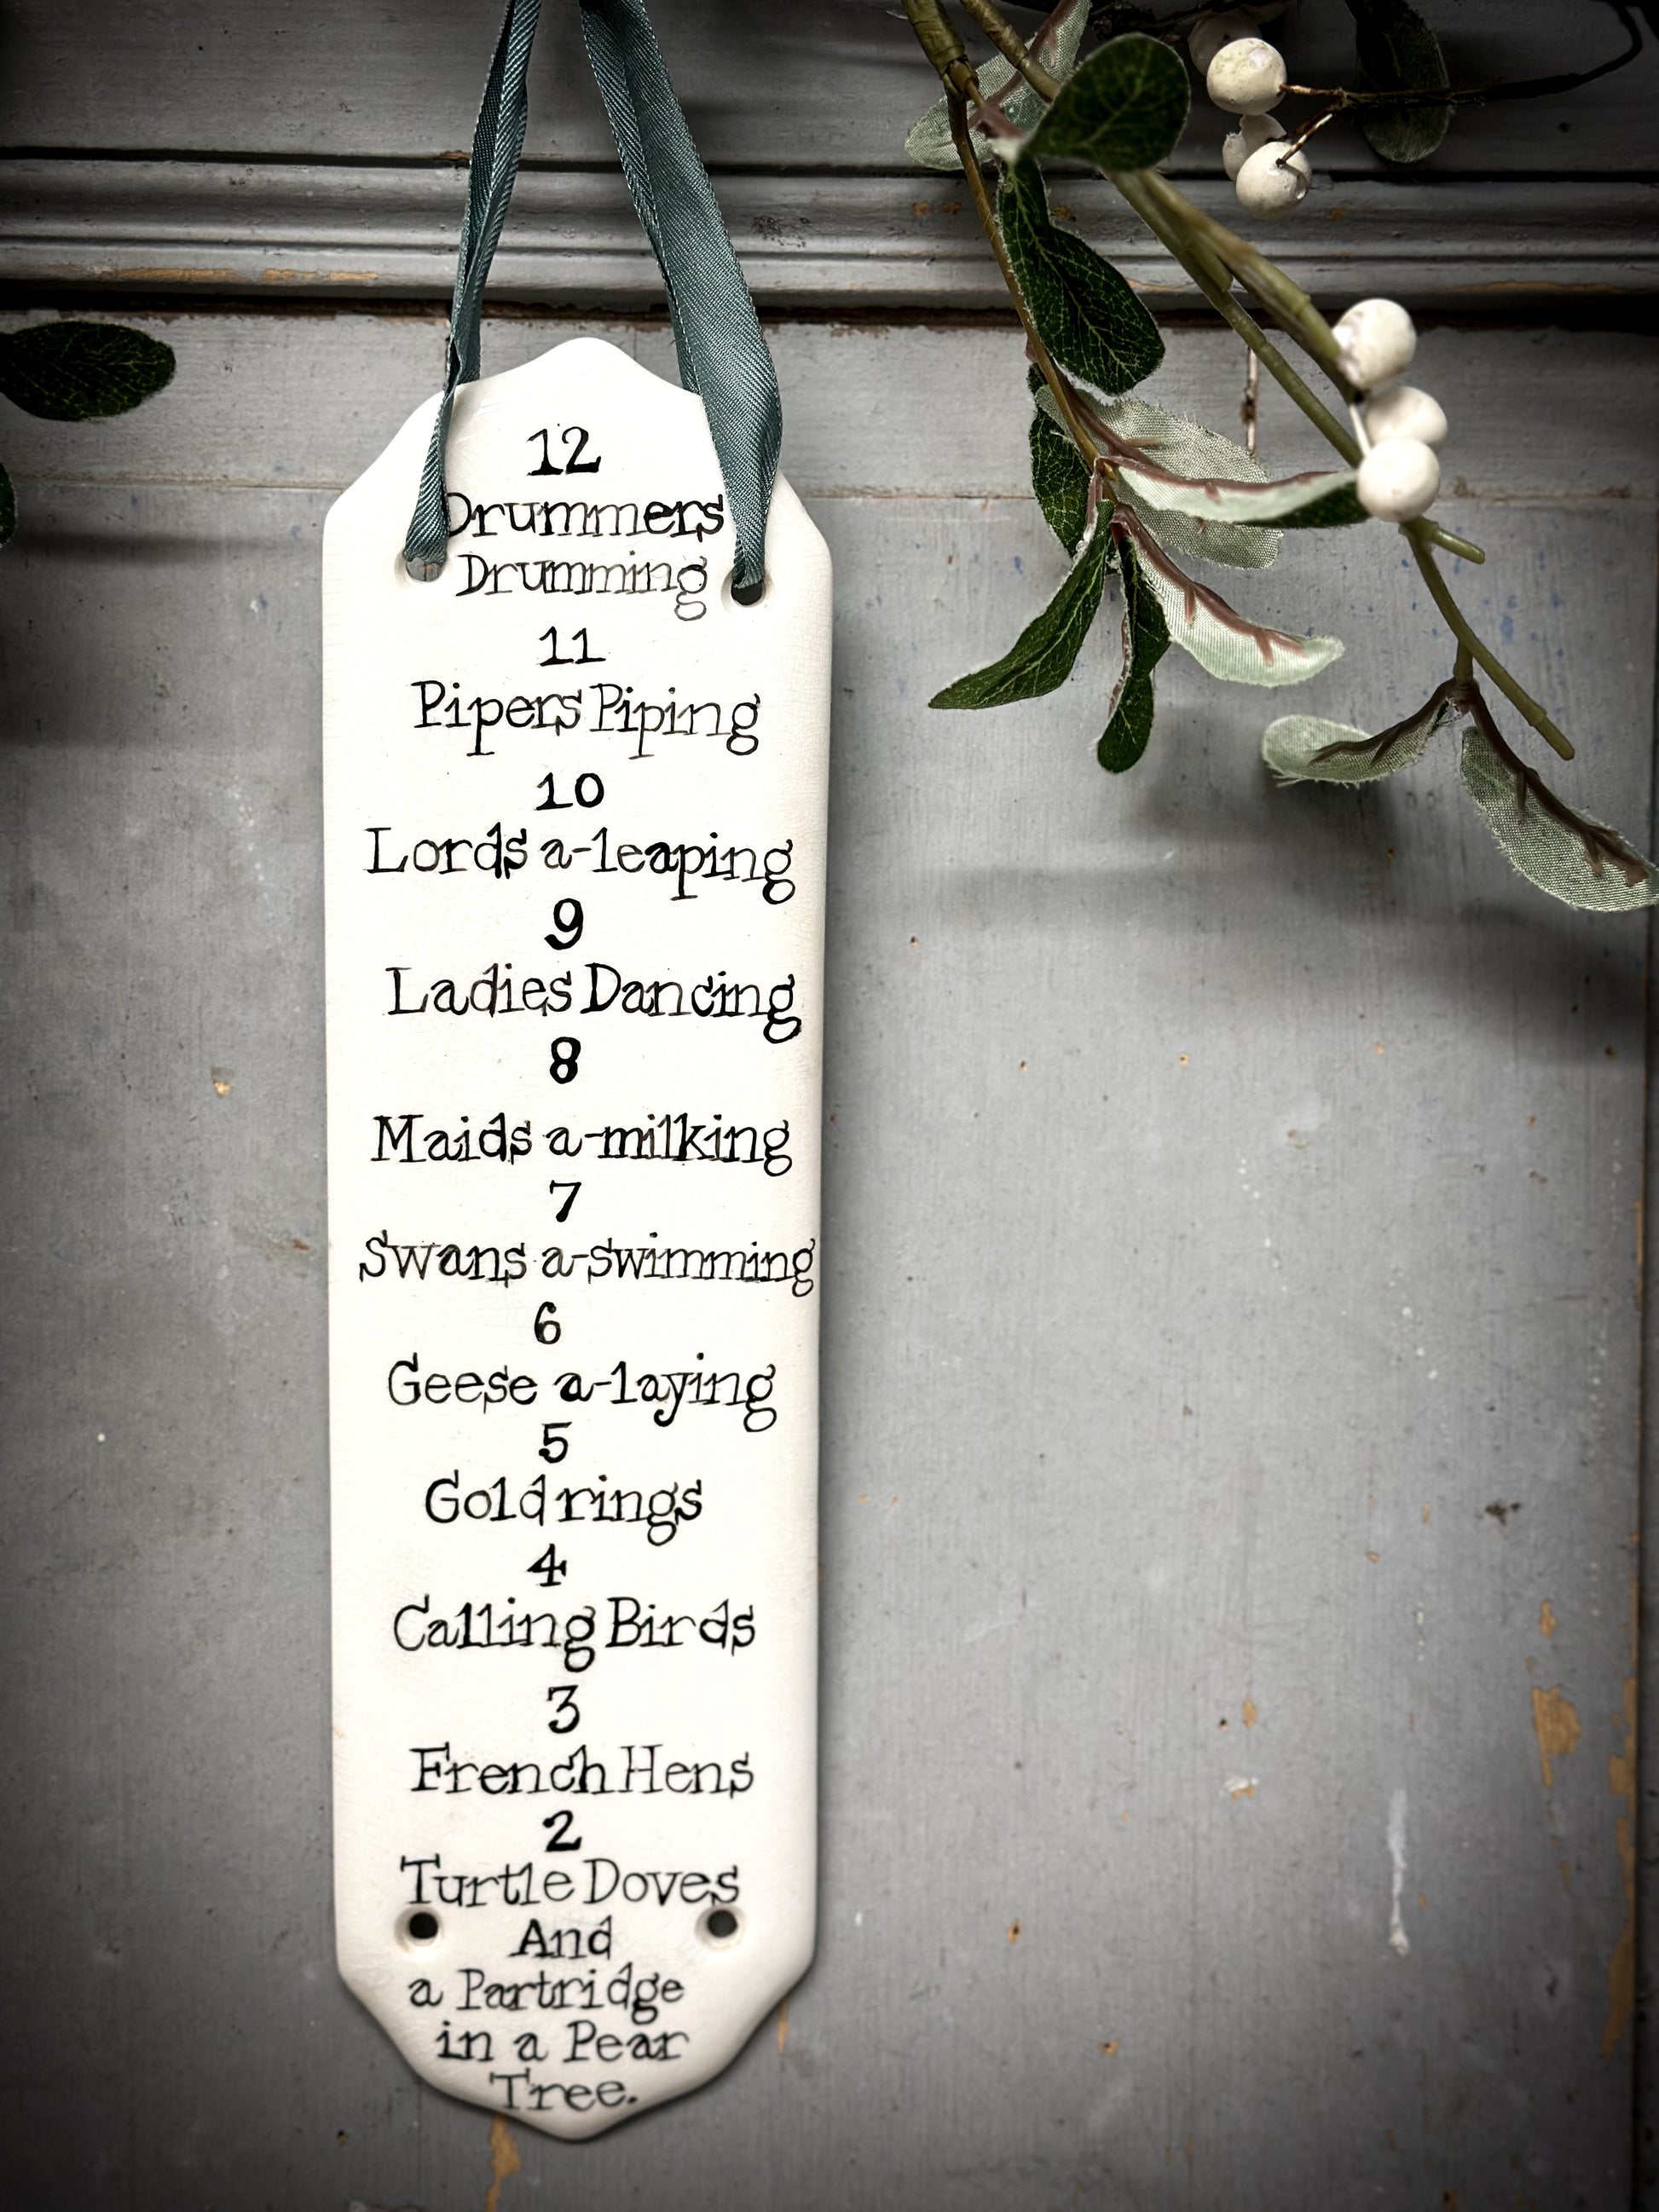 12
Drummers
Drumming
11
Pipers Piping
10
Lords a-leaping
9
Ladies Dancing
8
Maids a-milking
7
Swans a-swimming
6
Geese a-laying
5
Gold rings
4
Calling Birds
3
French Hens
2
Turtle Doves
And
a Partridge
in a Pear
Tree.